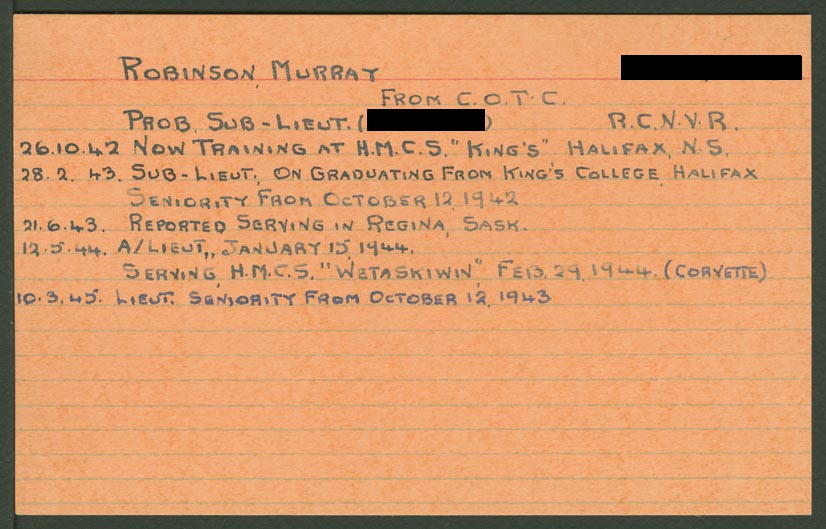 ROBINSON, MURRAY
FROM C.O.T.C.
PROB. SUB-LIEUT. ( ) R.C.N.V.R.
26.10.42 NOW TRAINING AT H.M.C.S. "KING'S" HALIFAX, N.S.
28.2.43. SUB-LIEUT., ON GRADUATING FROM KING'S COLLEGE, HALIFAX
SENIORITY FROM OCTOBER 12, 1942
21.6.43. REPORTED SERVING IN REGINA, SASK.
12.5.44. A/LIEUT., JANUARY 15, 1944.
SERVING, H.M.C.S. "WETASKIWIN", FEB. 29, 1944. (CORVETTE)
10.3.45. LIEUT. SENIORITY FROM OCTOBER 12, 1943